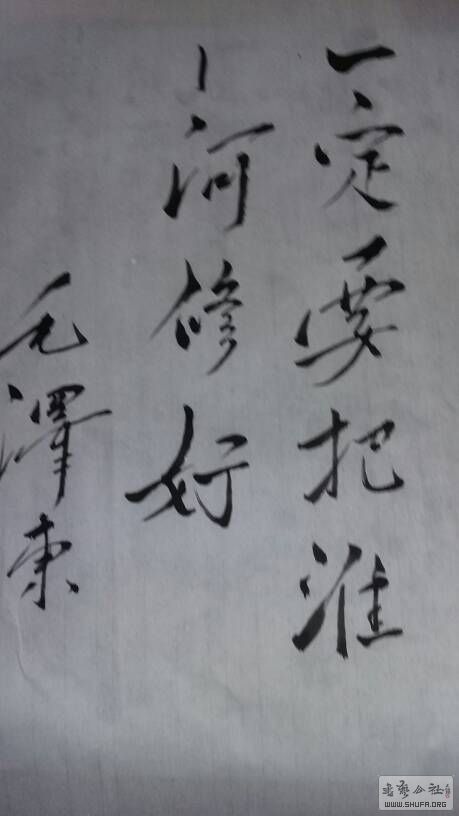 一定要把淮
河修好
毛澤东
書藝公社
WWW.SHUFA.ORG